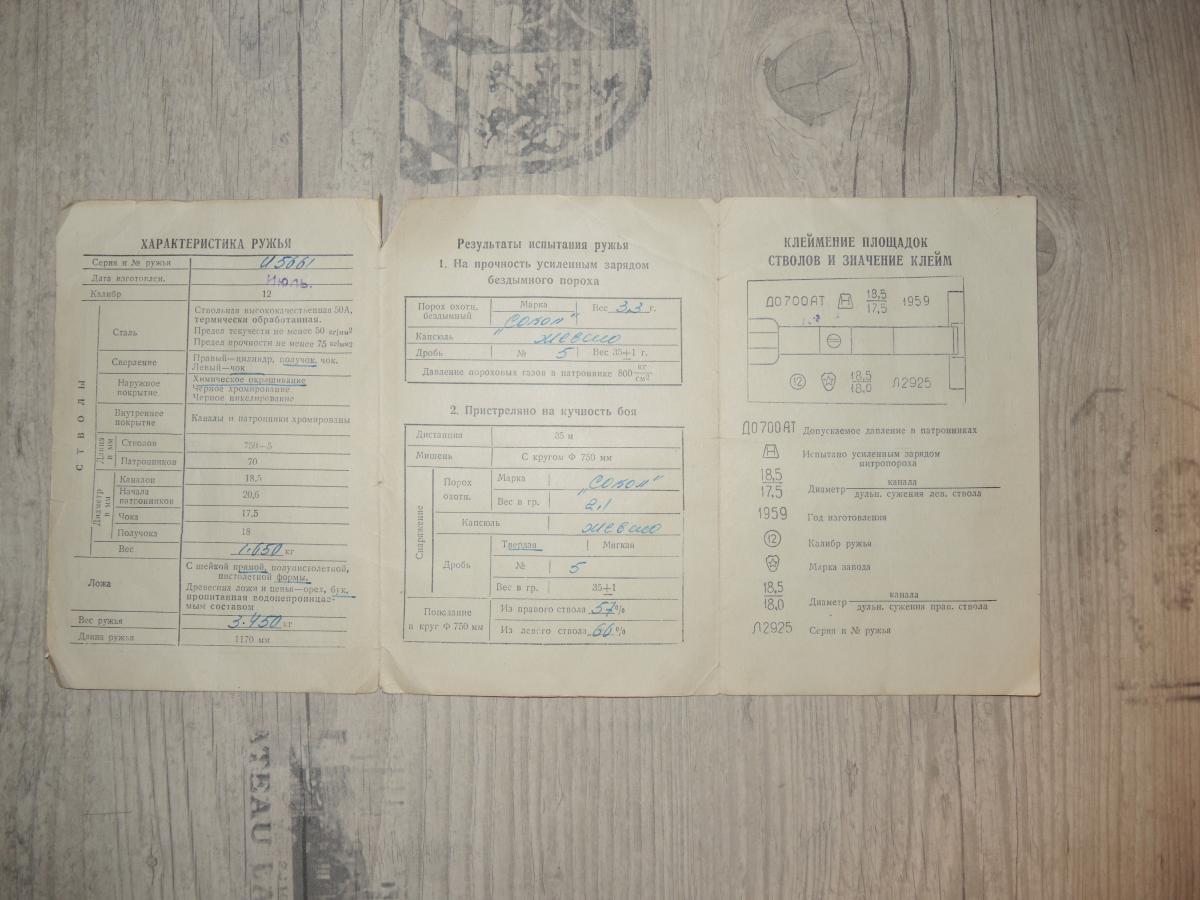 ХАРАКТЕРИСТИКА РУЖЬЯ
Серия и № ружья И 5661
Дата изготовлен. Июль.
Калибр 12
СТВОЛЫ
Сталь
Ствольная высококачественная 50А,
термически обработанная.
Предел текучести не менее 50 кг/мм²
Предел прочности не менее 75 кг/мм²
Сверление
Правый—цилиндр, получок, чок.
Левый—чок
Наружное покрытие
Химическое окрашивание
Черное хромирование
Черное никелирование
Внутреннее покрытие
Каналы и патронники хромированы
Длина в мм
Стволов 750—5
Патронников 70
Диаметр в мм
Каналов 18,5
Начала патронников 20,6
Чока 17,5
Получока 18
Вес 1.650 кг
Ложа
С шейкой прямой, полупистолетной,
пистолетной формы.
Древесина ложи и цевья—орех, бук,
пропитанная водонепроницае-
мым составом
Вес ружья 3.450 кг
Длина ружья 1170 мм
Результаты испытания ружья
1. На прочность усиленным зарядом
бездымного пороха
Порох охотн. бездымный
Марка "Сокол"
Вес 3,3 г.
Капсюль жевело
Дробь № 5 Вес 35±1 г.
Давление пороховых газов в патроннике 800 кг/см²
2. Пристреляно на кучность боя
Дистанция 35 м
Мишень С кругом Ф 750 мм
Снаряжение
Порох охотн.
Марка "Сокол"
Вес в гр. 2,1
Капсюль жевело
Дробь
Твердая Мягкая
№ 5
Вес в гр. 35±1
Показание
в круг Ф 750 мм
Из правого ствола 57%
Из левого ствола 66%
КЛЕЙМЕНИЕ ПЛОЩАДОК
СТВОЛОВ И ЗНАЧЕНИЕ КЛЕЙМ
Д0700АТ 18,5 1959
17,5
12 18,5 Л2925
18,0
Д0700АТ Допускаемое давление в патронниках
Испытано усиленным зарядом
нитропороха
18,5
17,5
Диаметр канала
дульн. сужения лев. ствола
1959 Год изготовления
12 Калибр ружья
Марка завода
18,5
18,0
Диаметр канала
дульн. сужения прав. ствола
Л2925 Серия и № ружья